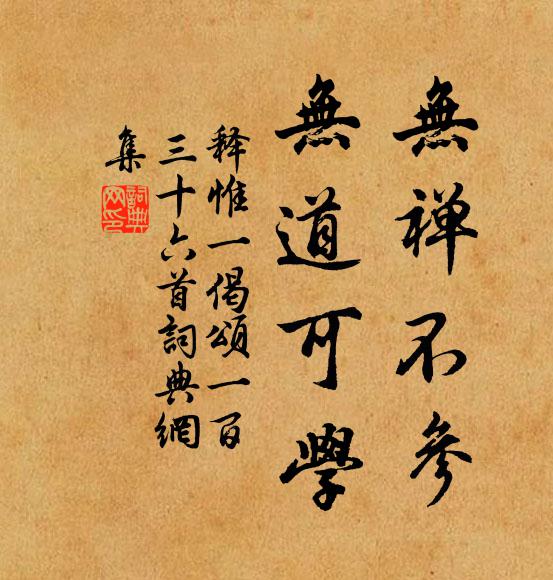 無禅不參
無道可學
释惟一偈頌一百
三十六首詞典網
集
詞典
网印